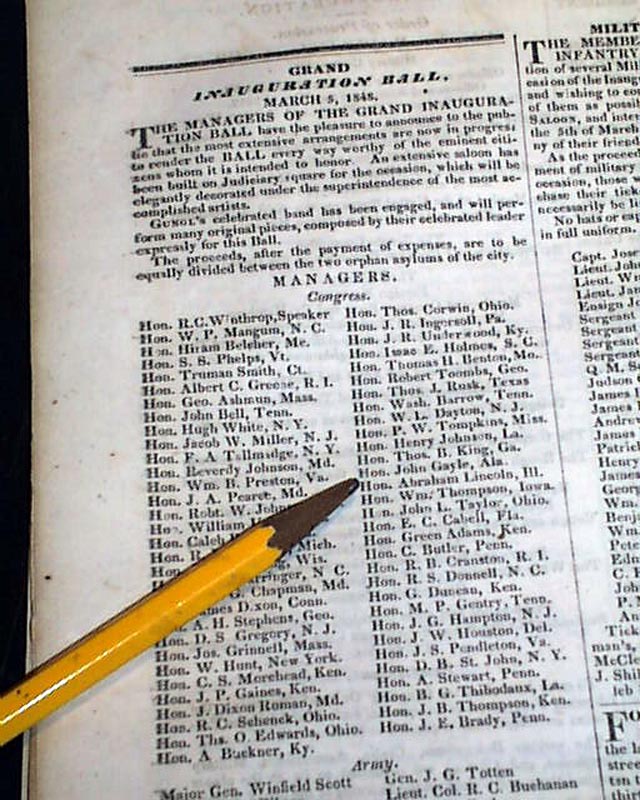 GRAND
INAUGURATION BALL.
MARCH 5, 1848.
THE MANAGERS OF THE GRAND INAUGURA-
TION BALL have the pleasure to announce to the pub-
lic that the most extensive arrangements are now in progress
to render the BALL every way worthy of the eminent citi-
zens whom it is intended to honor. An extensive saloon has
been built on Judiciary square for the occasion, which will be
elegantly decorated under the superintendence of the most ac-
complished artists.
GUNGL'S celebrated band has been engaged, and will per-
form many original pieces, composed by their celebrated leader
expressly for this Ball.
The proceeds, after the payment of expenses, are to be
equally divided between the two orphan asylums of the city.
MANAGERS.
Congress.
Hon. R.C. Winthrop, Speaker
Hon. W. P. Mangum, N. C.
Hon. Hiram Belcher, Me.
Hon. S. S. Phelps, Vt.
Hon. Truman Smith, Ct.
Hon. Albert C. Greene, R. I.
Hon. Geo. Ashmun, Mass.
Hon. John Bell, Tenn.
Hon. Hugh White, N. Y.
Hon. Jacob W. Miller, N. J.
Hon. F. A Tallmadge, N. Y.
Hon. Reverdy Johnson, Md.
Hon. Wm. B. Preston, Va.
Hon. J. A. Pearce, Md.
Hon. Robt. W. John
Hon. William
Hon. Caleb
Hon. R. Mich.
Hon. Wis.
Hon. ringer, N C.
Hon. G. Chapman, Md.
Hon. James Dixon, Conn.
Hon. A. H. Stephens, Geo.
Hon. D. S Gregory, N. J.
Hon. Jos. Grinnell, Mass.
Hon. W. Hunt, New York.
Hon. C. S. Morehead, Ken.
Hon. J. P. Gaines, Ken.
Hon. J. Dixon Roman, Md.
Hon. R. C. Schenck, Ohio.
Hon. Ths. O. Edwards, Ohio.
Hon. A Buckner, Ky.
Hon. Thos. Corwin, Ohio.
Hon. J. R. Ingersoll, Pa.
Hon. J. R. Underwood, Ky.
Hon. Isaac E. Holmes, S. C.
Hon. Thomas H. Benton, Mo.
Hon. Robert Toombs, Geo.
Hon. Thos. J. Rusk, Texas
Hon. Wash. Barrow, Tenn.
Hon. W. L. Dayton, N. J.
Hon. P. W. Tompkins, Miss.
Hon. Henry Johnson, La.
Hon. Thos. B. King, Ga.
Hon. John Gayle, Ala.
Hon. Abraham Lincoln, Ill.
Hon. Wm. Thompson, Iowa.
Hon. John L. Taylor, Ohio.
Hon. E. C. Cabell, Fla.
Hon. Green Adams, Ken.
Hon. C. Butler, Penn.
Hon. R. B. Cranston, R. I.
Hon. R. S. Donnell, N. C.
Hon. G. Duncan, Ken.
Hon. M. P. Gentry, Tenn.
Hon. J. G. Hampton, N. J.
Hon. J. W. Houston, Del.
Hon. J. S. Pendleton, Va.
Hon. D. B. St. John, N. Y.
Hon. A. Stewart, Penn.
Hon. B. G. Thibodaux, La.
Hon. J. B. Thompson, Ken.
Hon. J. E. Brady, Penn.
Army.
Major Gen. Winfield Scott
Gen. J. G. Totten
Lieut. Col. R. C. Buchanan
MILIT
THE MEMBE
INFANTRY
tion of several Mili
casion of the Inaug
and wishing to co
of them as poss
SALOON, and inter
the 5th of March
ny of their friend
As the proceed
ment of military
occasion, those w
chase their tick
necessarily be li
No hats or ca
in full uniform.
Capt. Jose
Lieut. John
Lieut. Wm
Lieut. Jam
Ensign J
Sergeant
Sergeant
Sergeant
Sergeant
Q. M. S
Judson
James
James
Andrew
James
Patrick
Henry
James
Georg
Wm.
Benj
Wm.
Pete
Edn
C. I
Joh
P.
An
Tick
man's,
McCl
J. Shi
leb
FO
the l
stree
tsn
thir